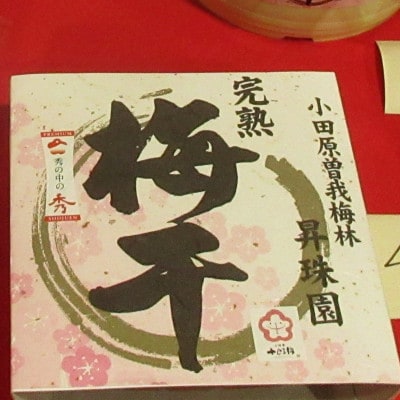 小田原曽我梅林
昇珠園
完熟
梅干
PREMIUM
秀の中の
秀
SHOJUEN